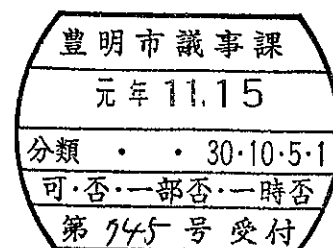 豊明市議事課
元年11.15
分類 ・ ・ 30・10・5・1
可・否・一部否・一時否
第745号受付